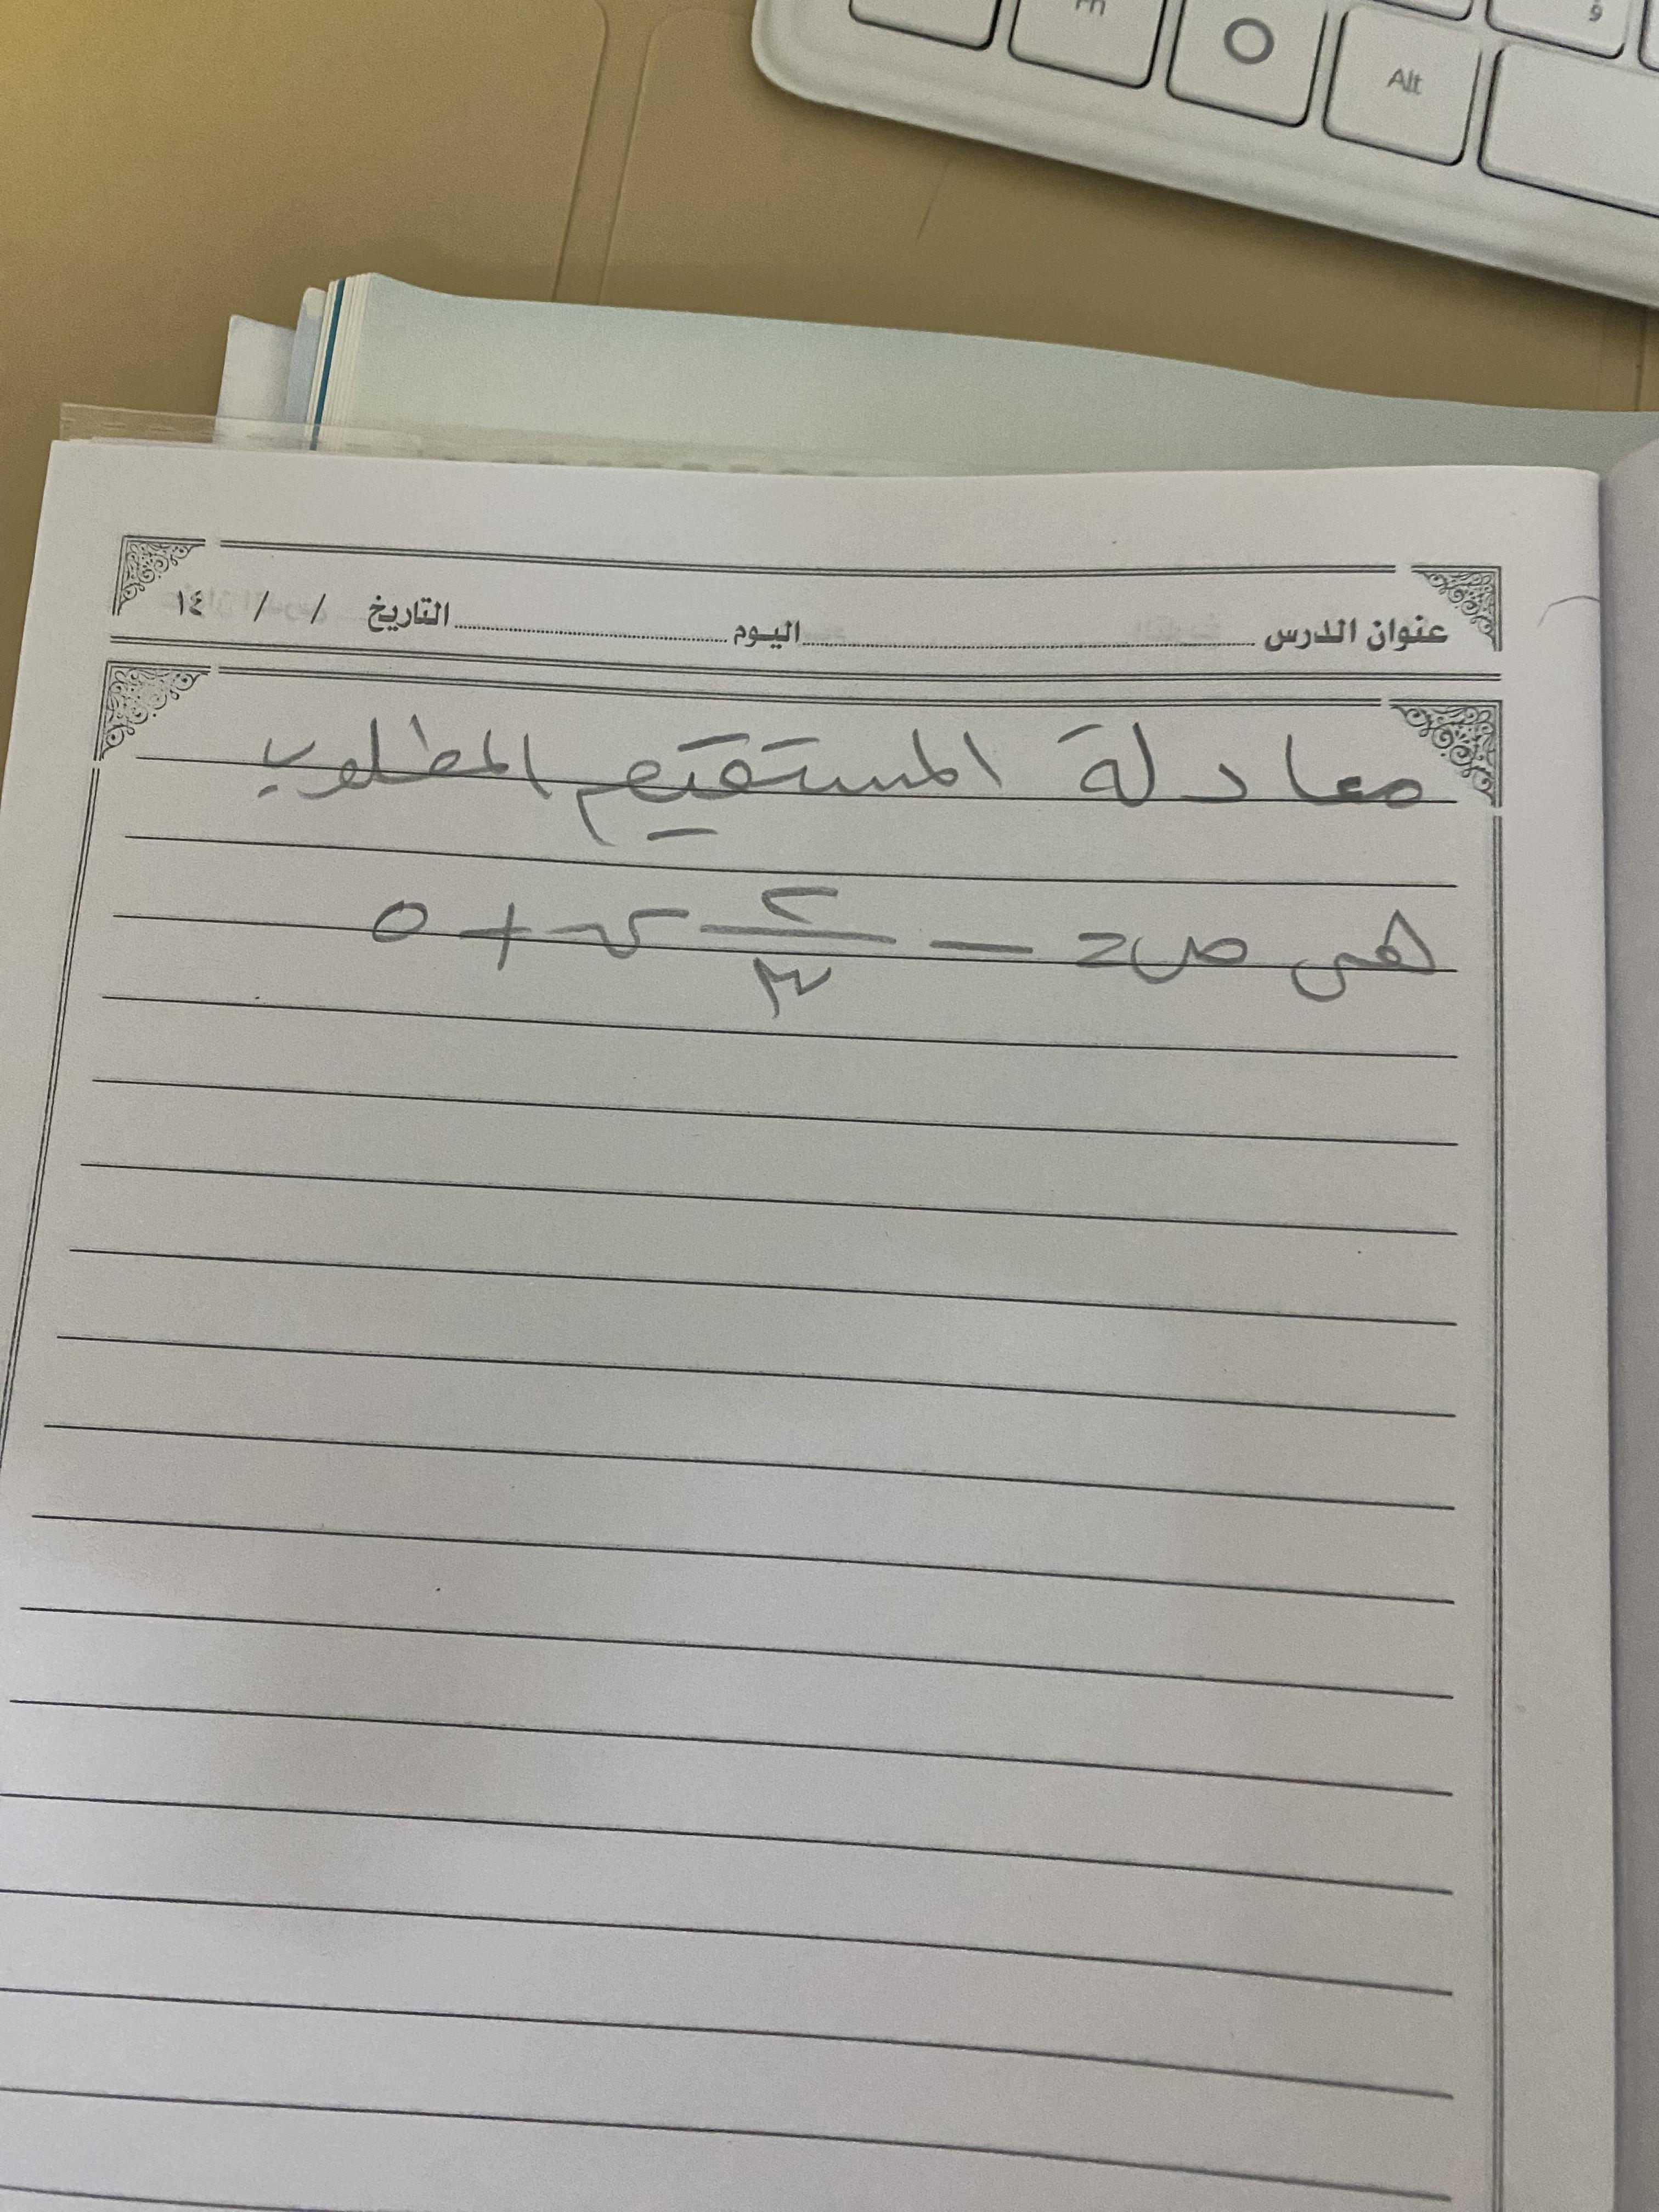 Fn
Alt
و
عنوان الدرس اليوم التاريخ / / ١٤
معادلة المستقيم المطلوب
هي ص = - ٢/٣ س + ٥